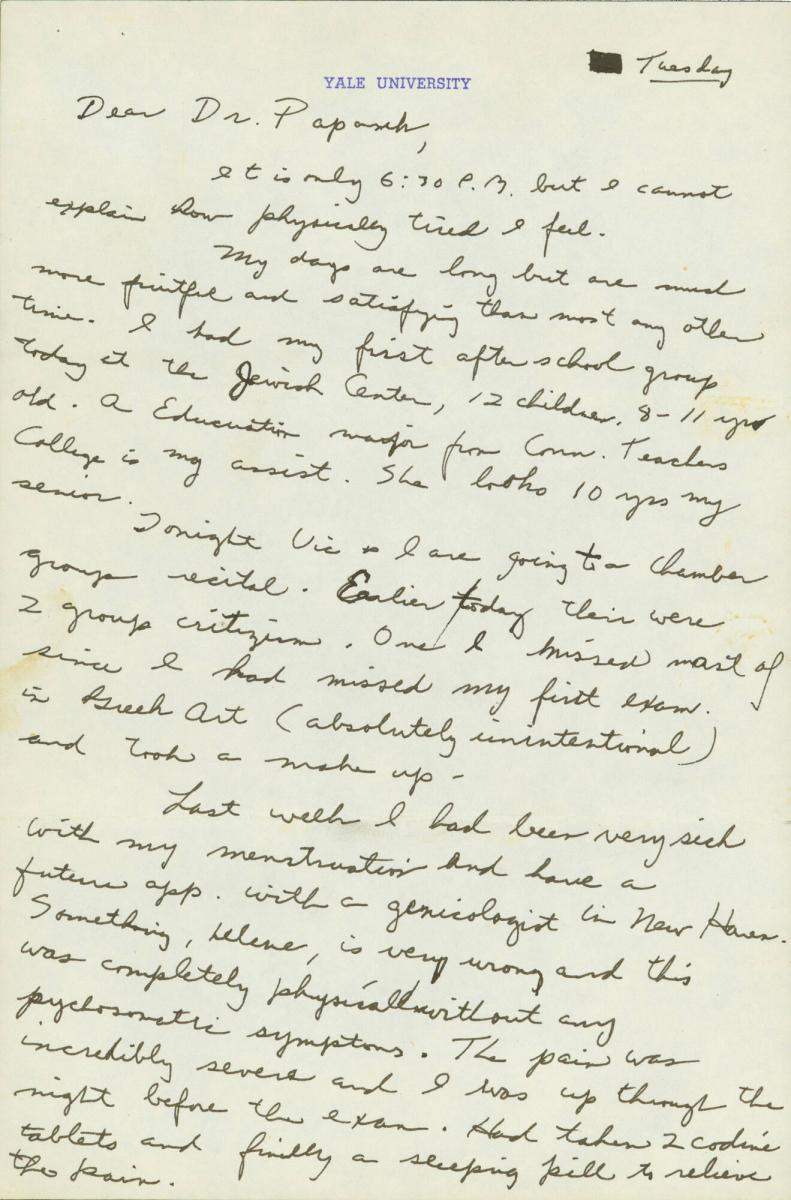 Tuesday
YALE UNIVERSITY
Dear Dr. Papanek,
It is only 6:30 P.M. but I cannot
explain how physicaley tired I feel.
My days are long but are much
more fruitful and satisfying than most any other
time. I had my first after school group
today at the Jewish Center, 12 children, 8-11 yrs
old. A Educuation major from Conn. Teachers
College is my assist. She looks 10 yrs my
senior.
Tonight Vic & I are going to a chamber
group recital. Earlier today their were
2 group critizism. One I missed most of
since I had missed my first exam.
in Greek Art (absolutely unintentional)
and took a make up -
Last week I had been very sick
with my menstruation and have a
future app. with a genicologist in New Haven.
Something, Helene, is very wrong and this
was completely physicall without any
pyschosomatic symptoms. The pain was
incredibly severe and I was up through the
night before the exam. Had taken 2 codine
tablets and finilly a sleeping pill to relieve
the pain.